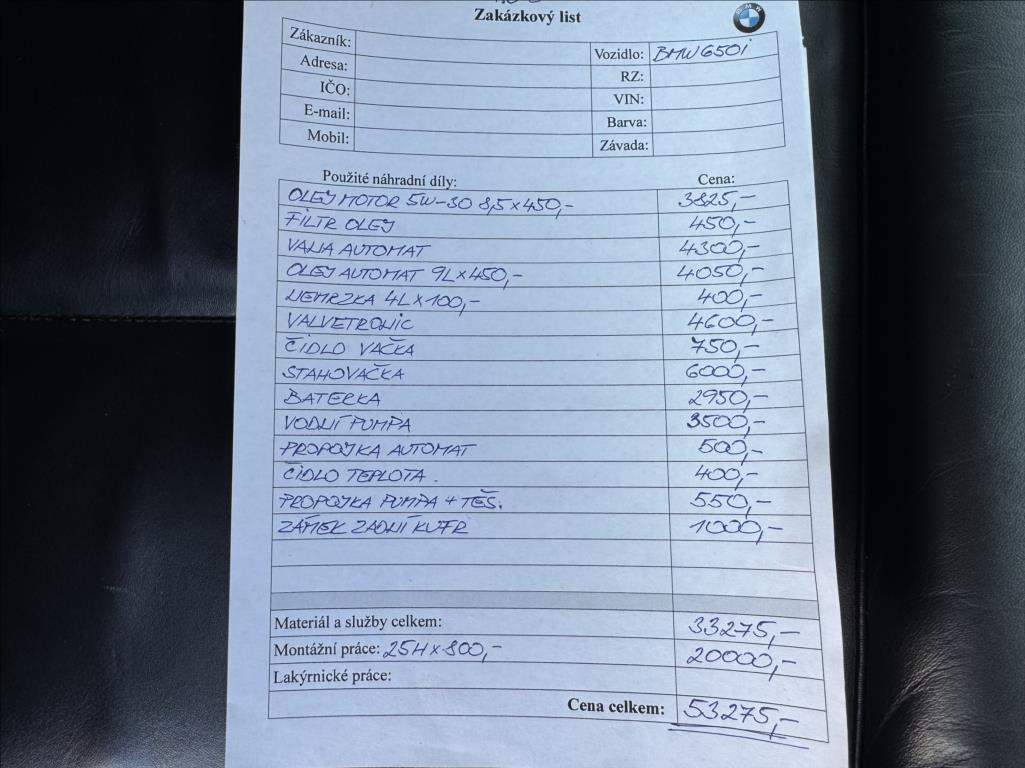 Zakázkový list
BMW
Zákazník:
Vozidlo: BMW 650i
Adresa:
RZ:
IČO:
VIN:
E-mail:
Barva:
Mobil:
Závada:
Použité náhradní díly: Cena:
OLEJ MOTOR 5W-30 8,5×450,- 3825,-
FILTR OLEJ 450,-
VANA AUTOMAT 4300,-
OLEJ AUTOMAT 9L×450,- 4050,-
NEMRZKA 4L×100,- 400,-
VALVETRONIC 4600,-
ČIDLO VAČKA 750,-
STAHOVAČKA 6000,-
BATERKA 2950,-
VODNÍ PUMPA 3500,-
PROPOJKA AUTOMAT 500,-
ČIDLO TEPLOTA. 400,-
PROPOJKA PUMPA + TĚS. 550,-
ZÁMEK ZADNÍ KUFR 1000,-
Materiál a služby celkem: 33275,-
Montážní práce: 25H×800,- 20000,-
Lakýrnické práce:
Cena celkem: 53275,-